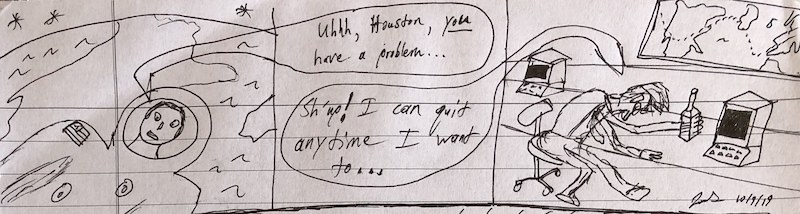 Uhhh, Houston, you
have a problem...
Sh'yo! I can quit
anytime I want
to...
10/9/19